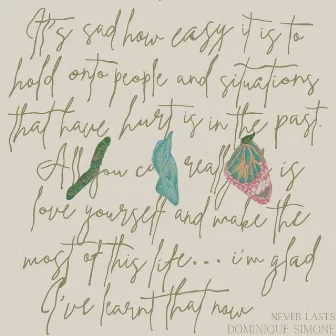 It's sad how easy it is to
hold onto people and situations
that have hurt is in the past.
All you ca really is
love yourself and make the
most of this life... i'm glad
I've learnt that now
NEVER LASTS
DOMINIQUE SIMONE